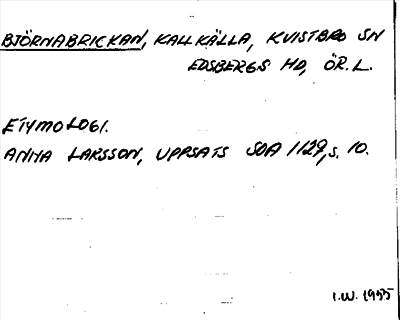 BJÖRNABRICKAN, KALLKÄLLA, KVISTBRO SN
EDSBERGS HD, ÖR. L.
ETYMOLOGI.
ANNA LARSSON, UPPSATS SOA 1129, S. 10.
I.W. 1955